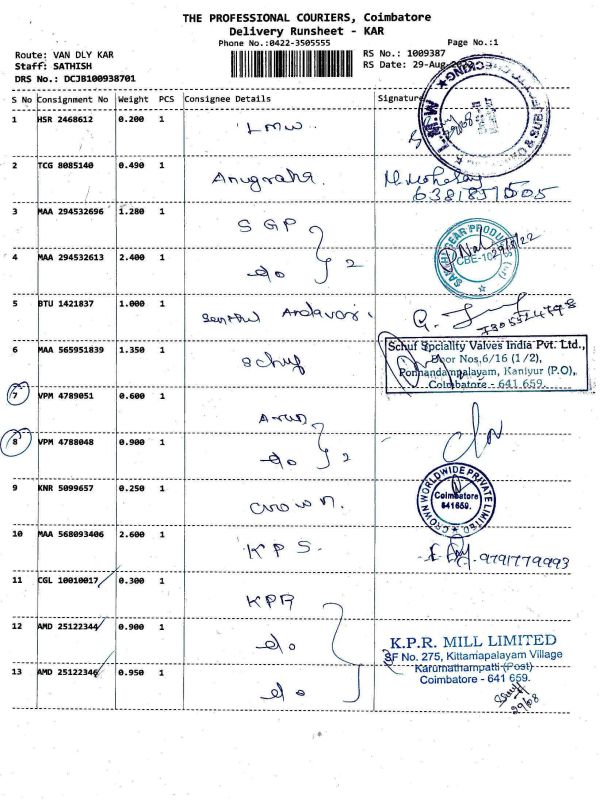 THE PROFESSIONAL COURIERS, Coimbatore
Delivery Runsheet - KAR
Phone No.:0422-3505555
Page No.:1
Route: VAN DLY KAR
Staff: SATHISH
DRS No.: DCJB100938701
RS No.: 1009387
RS Date: 29-Aug
S No Consignment No Weight PCS Consignee Details Signature
1 HSR 2468612 0.200 1 LMW
2 TCG 8085140 0.490 1 Anugraha.
6381857505
3 MAA 294532696 1.280 1 SGP
4 MAA 294532613 2.400 1 do 2
SAKTHI GEAR PRODUCTS
CBE-10
29/8/22
5 BTU 1421837 1.000 1 Senthil Andavar
6 MAA 565951839 1.350 1 Schuf
Schuf Spciality Valves India Pvt. Ltd.,
Door Nos,6/16 (1/2),
Ponnandampalayam, Kaniyur (P.O),
Coimbatore - 641 659.
7 VPM 4789051 0.600 1
8 VPM 4788048 0.900 1 do 2
9 KNR 5099657 0.250 1 Crown.
CROWN WORLDWIDE PRIVATE LIMITED
Coimbatore
641659.
10 MAA 568093406 2.600 1 KPS.
9791779993
11 CGL 10010017 0.300 1 KPR
12 AMD 25122344 0.900 1 do
13 AMD 25122346 0.950 1 do
K.P.R. MILL LIMITED
SF No. 275, Kittamapalayam Village
Karumathampatti (Post)
Coimbatore - 641 659.
29/08